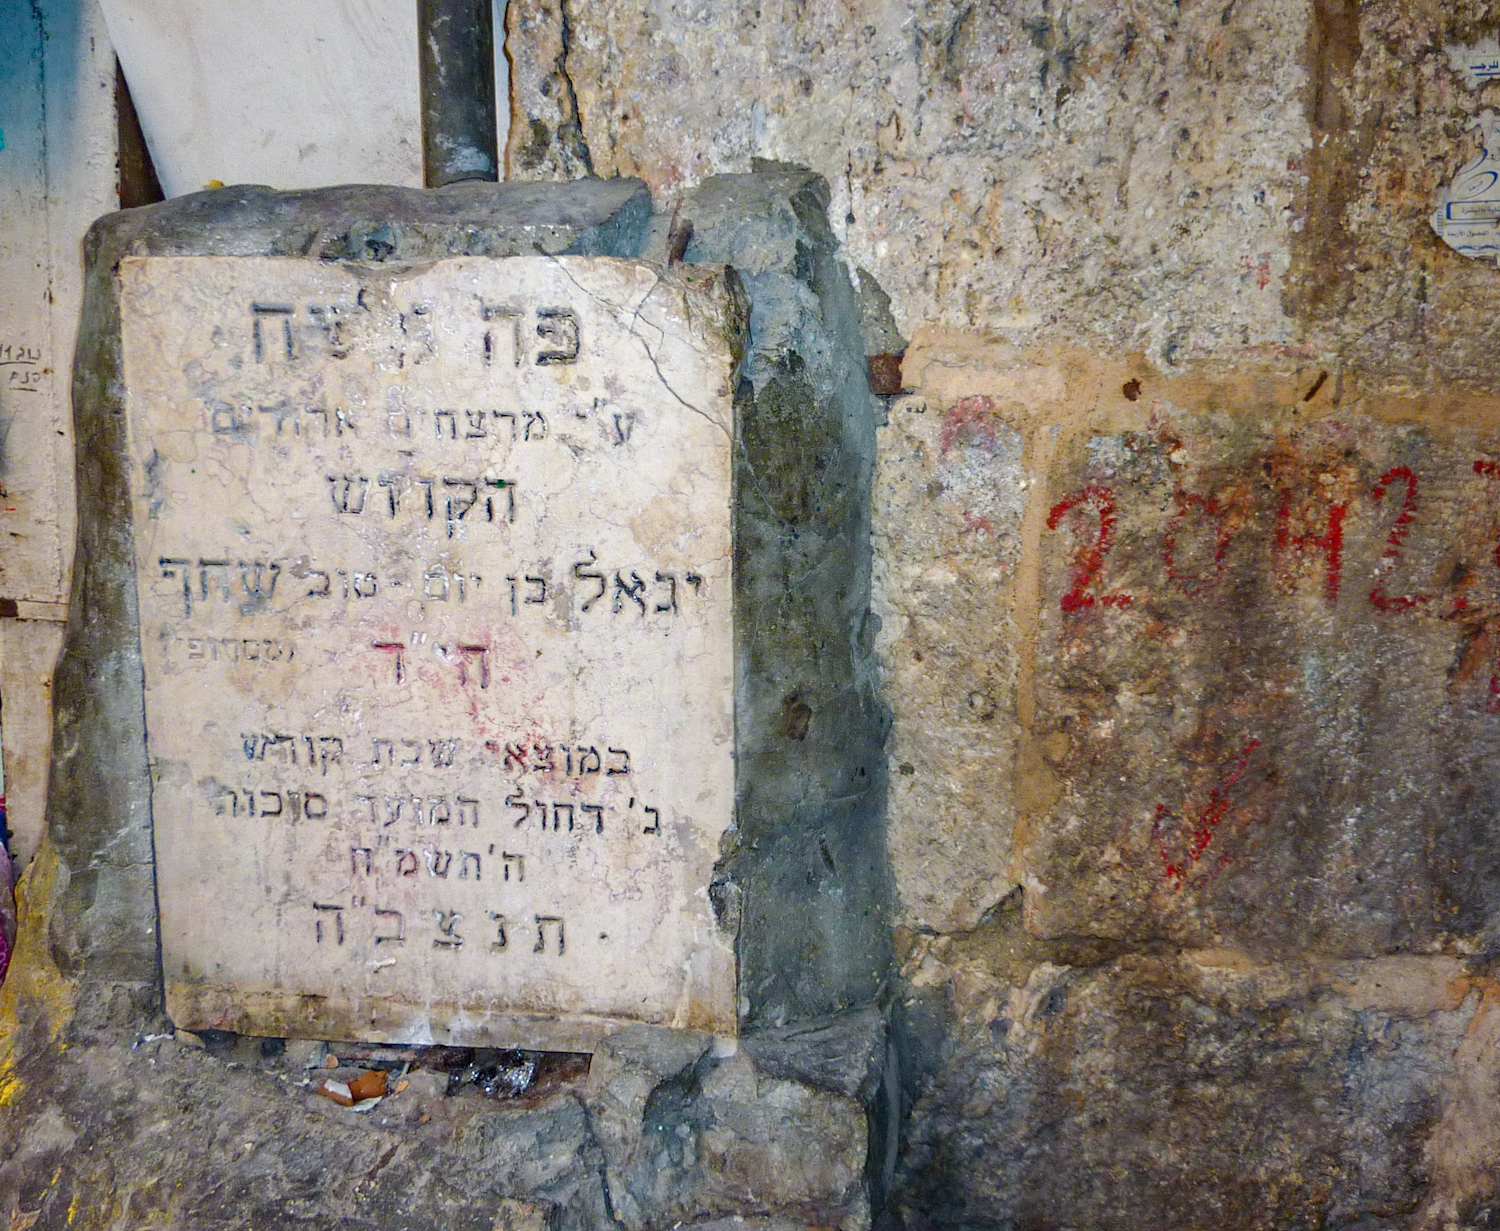 פה נרצח
ע"י מרצחים ארורים
הקודש
יגאל בן יום-טוב שחף
הי"ד
במוצאי שבת קודש
ג' דחול המועד סוכות
ה'תשמ"ח
ת נ צ ב"ה
2042